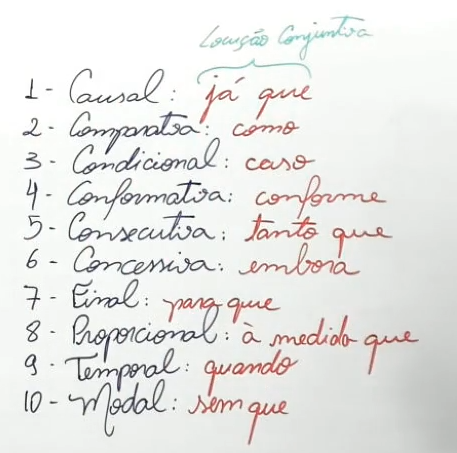 Locução Conjuntiva
1 - Causal: já que
2 - Comparativa: como
3 - Condicional: caso
4 - Conformativa: conforme
5 - Consecutiva: tanto que
6 - Concessiva: embora
7 - Final: para que
8 - Proporcional: à medida que
9 - Temporal: quando
10 - Modal: sem que